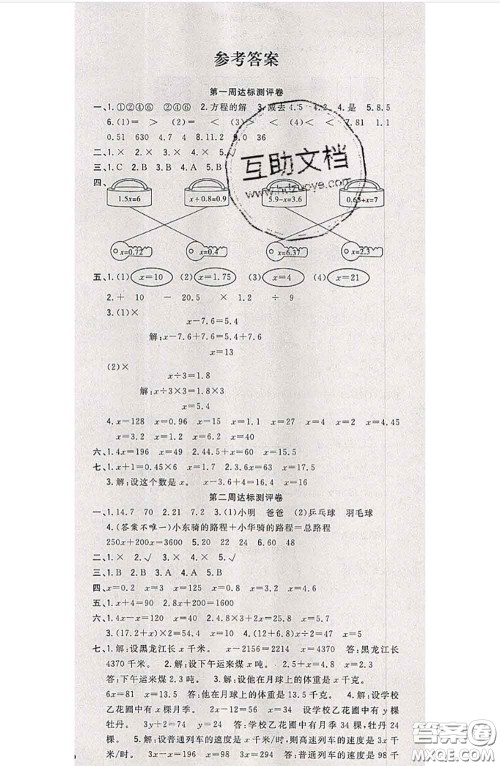 参考答案
第一周达标测评卷
一、1.①②④⑥ ②④⑥ 2.方程的解 3.减去4.5 4.是 5.8.5
6.(1)= > (2)= > (3)< < (4)> < 7.1.1
0.51 630 4.7 8.11.2 9.0 36
二、1.× 2.× 3.× 4.× 5.×
三、1.C 2.B 3.B 4.A 5.B
四、
1.5x=6 x+0.8=0.9 5.9-x=3.6 0.63+x=7
x=0.72 x=0.4 x=6.37 x=2.3
五、1.(1) x=10 (2) x=1.75 (3) x=4 (4) x=21
2.+ 10 - 20.5 × 12 ÷ 9
3.(1)×
x-7.6=5.4
解:x-7.6+7.6=5.4+7.6
x=13
(2)×
x÷3=1.8
解:x÷3×3=1.8×3
x=5.4
4.x=128 x=0.96 x=9.1 x=2 x=4.45
x=13 x=0.8 x=281 x=60
六、1.4x=196 x=49 2.4x=52 x=13
七、1.x+1=0.45×6 x=1.7 2.3.6x=57.6 x=16
3.解:设这个数是x。 x-3.6+4=16 x=16.4
第二周达标测评卷
一、1.14.58 70 2.21 7.2 3.(1)小明 爸爸 (2)乒乓球 羽毛球
4.(答案不唯一)小东骑的路程+小华骑的路程=总路程
250x+200x=3600 5.20 22 24 6.60 48
二、1.× 2.√ 3.× 4.× 5.√
三、1.B 2.B 3.A 4.A 5.B
四、x=0.2 x=3 x=125 x=0.8 x=103 x=10
五、1.x+4=90 2.8x+1.2=5.2
六、1.x+45=70 x=25 2.4.8×3+2x=25 x=5.3
3.(7.2+x)×4=52 x=5.8 4.(12+6.8)x=47 x=2.5
七、1.解:设黑龙江长x千米。 x-2156=2214 x=4370 答:黑龙江长
4370千米。 2.解:设下午运来煤x吨。 x-0.7=1.6 x=2.3
答:下午运来煤2.3吨。 3.解:设他在月球上的体重是x千克。
6x=81 x=13.5 答:他在月球上的体重是13.5千克。 4.解:设学校
乙花圃中有月季x棵。 2x-4=64 x=34 设学校乙花圃中有y棵
牡丹。 3y-2=70 y=24 答:学校乙花圃中有月季34棵,
牡丹24棵。 5.解:设普通列车的速度是x千米/时,则高速列车的速度是3x
千米/时。 3x-x=196 x=98 答:普通列车的速度是98千
互助文档
www.hdzuoye.com
答案圈
MXQE.COM